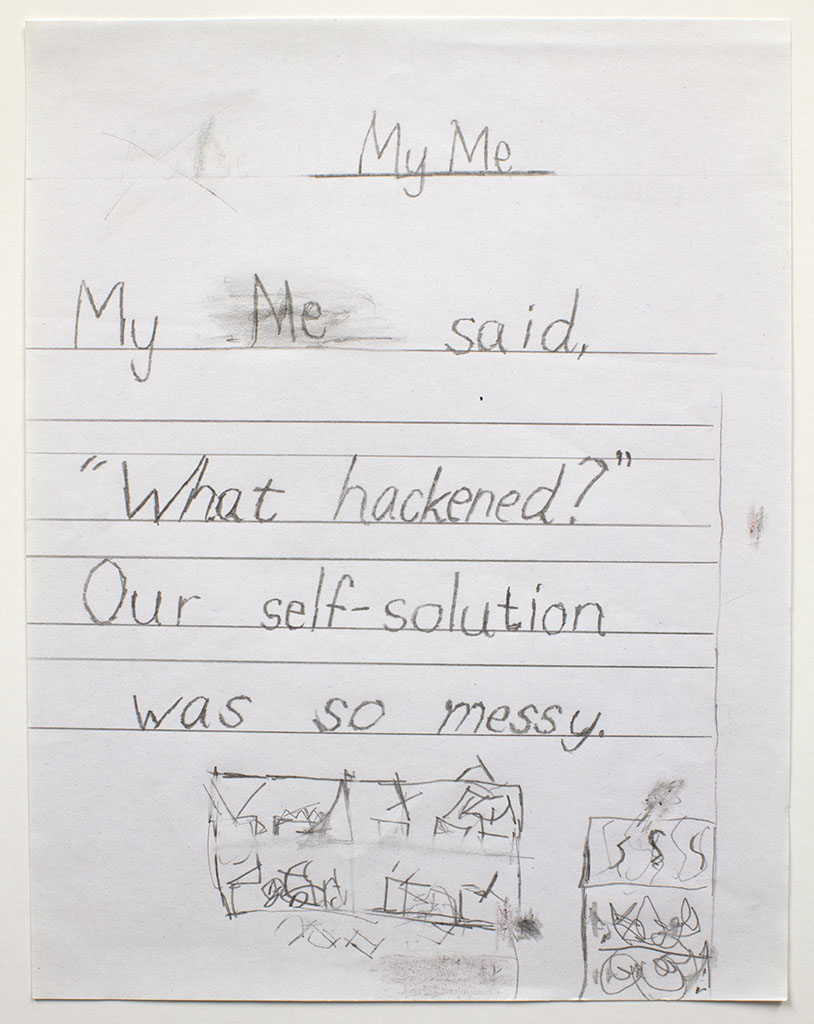 My Me
My Me said,
"What hackened?"
Our self-solution
was so messy.